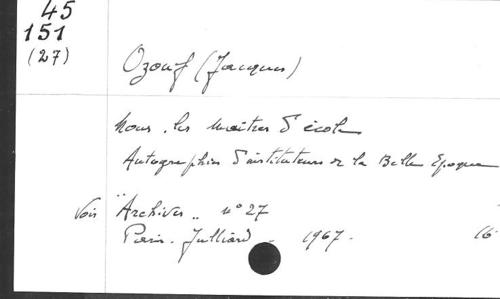 45
151
(27)
Ozouf (Jacques)
Nous, les maîtres d'école
Autographies d'instituteurs de la Belle Epoque
Voir "Archives" n° 27
Paris. Julliard. 1967. 16